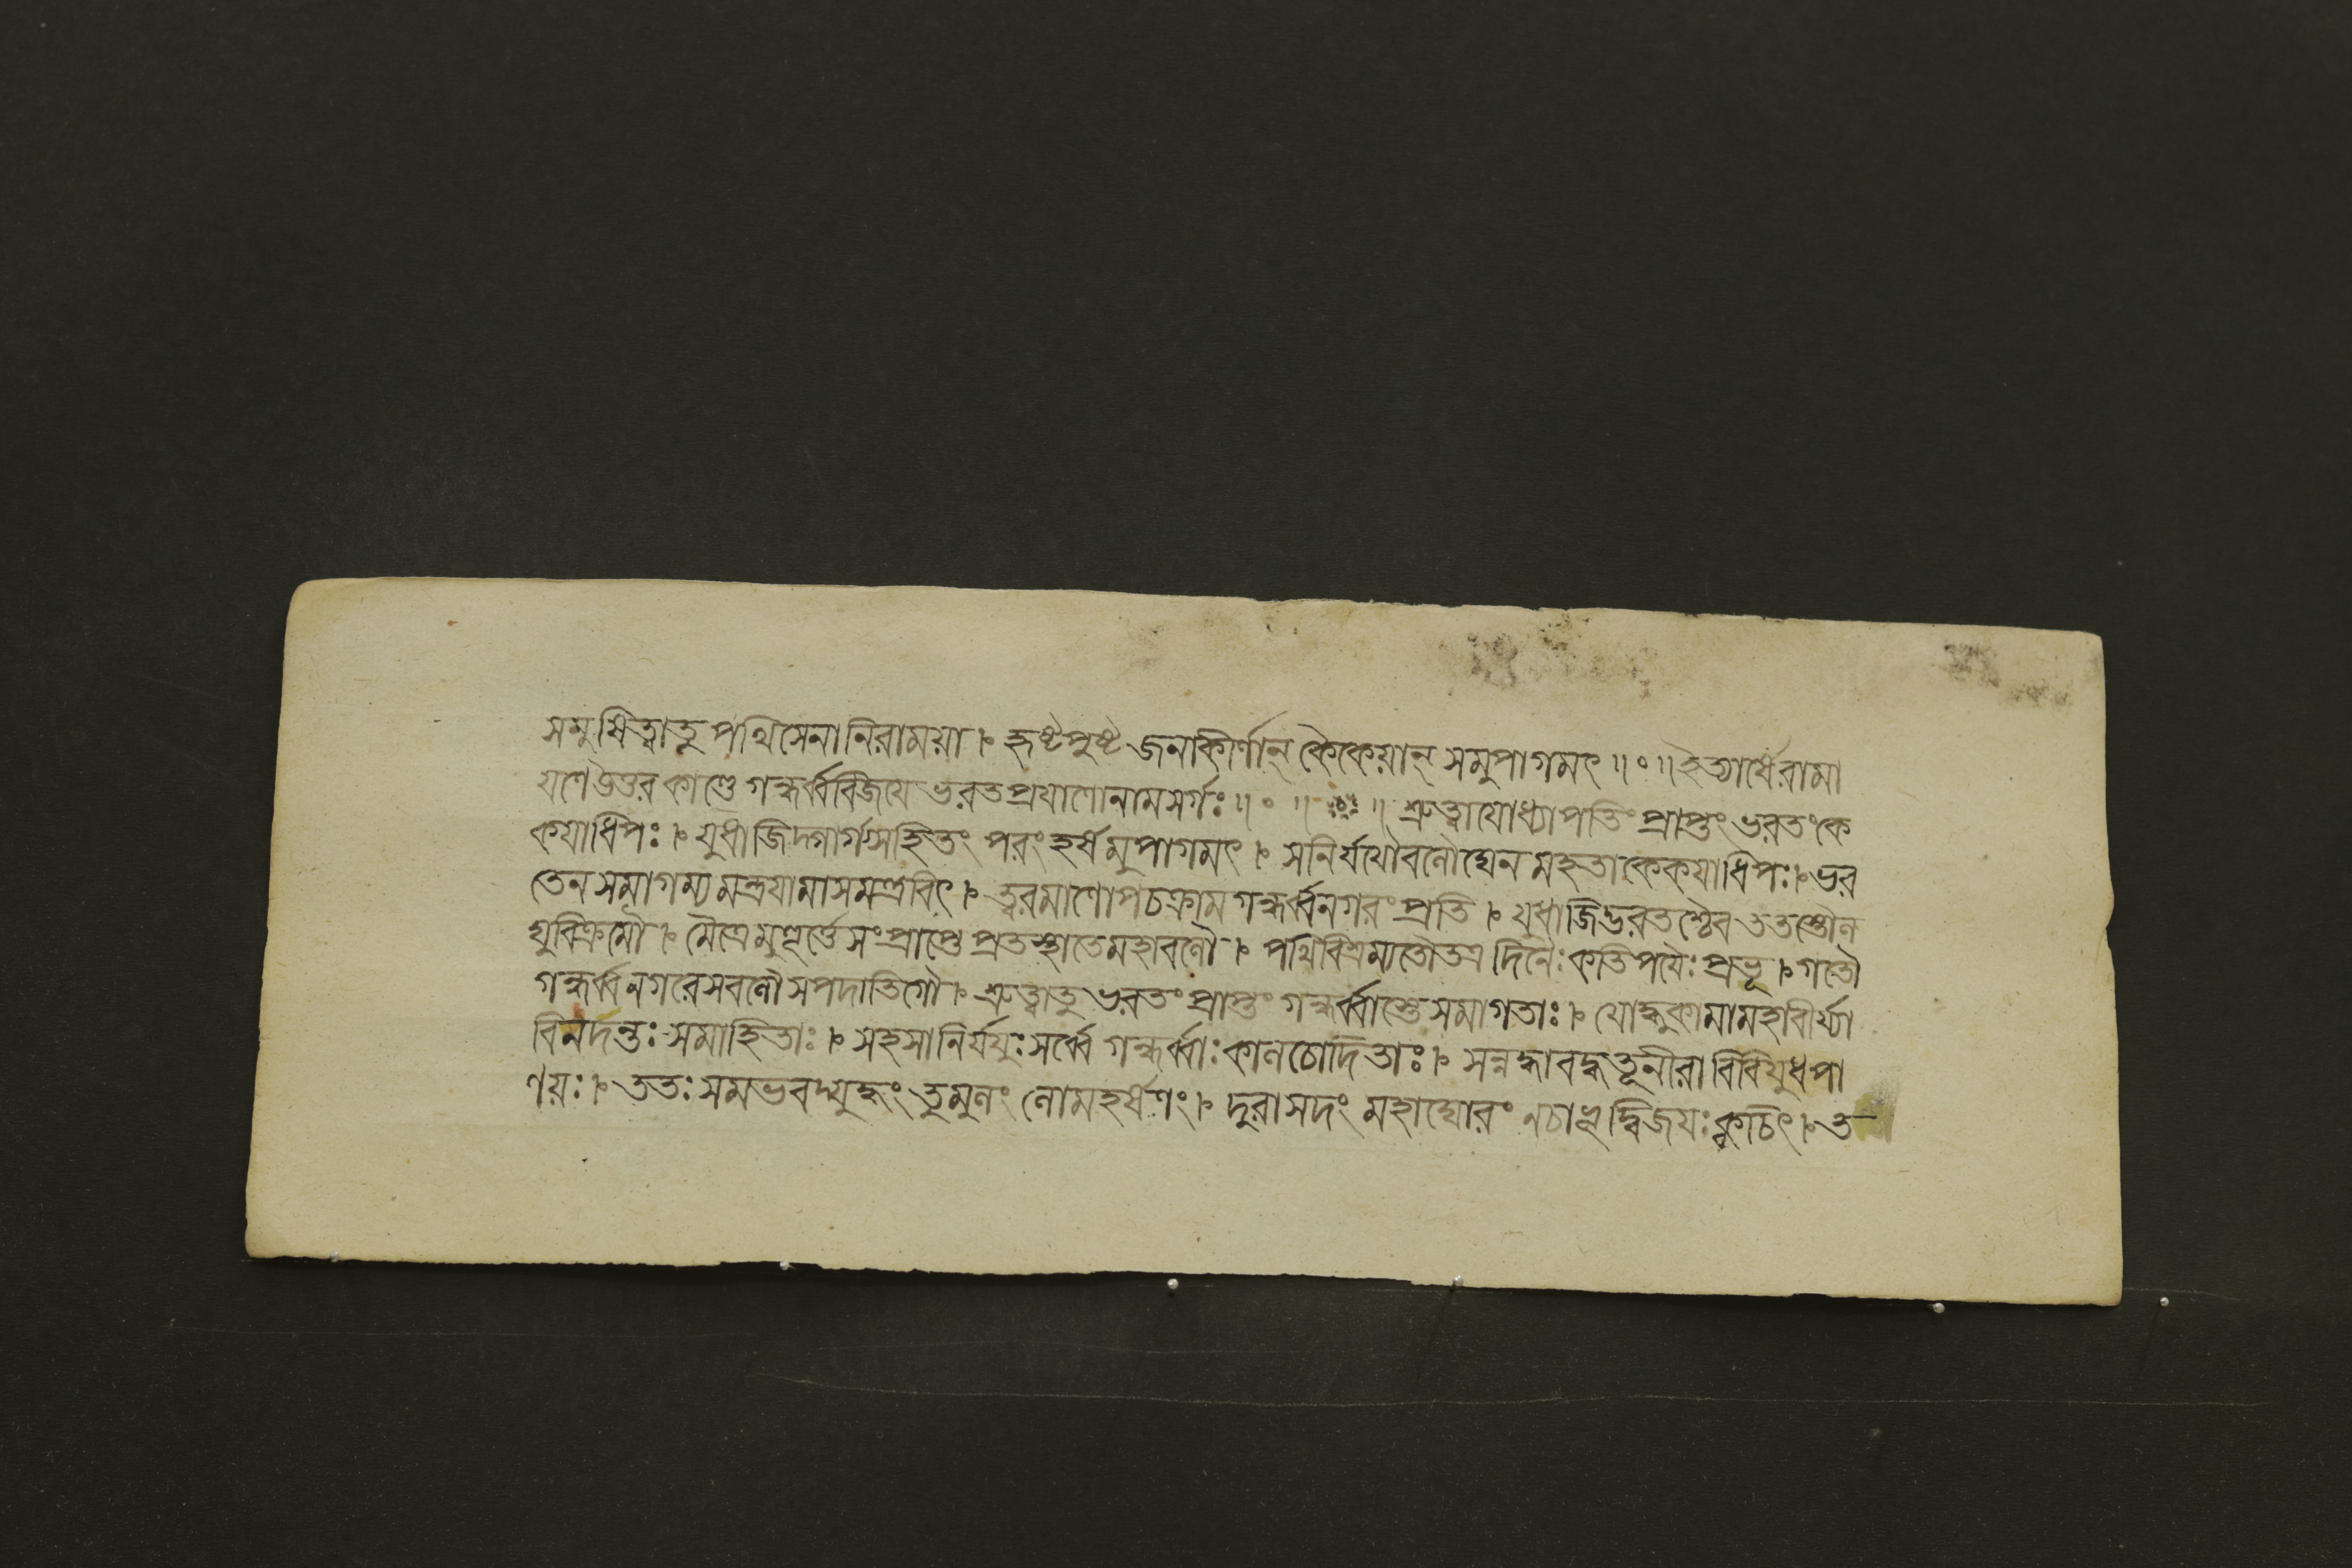 সমুষিত্বাতু পথিসেনানিরাময়া । হৃষ্টপুষ্ট জনাকীর্ণান্ কৈকেয়ান্ সমুপাগমৎ ॥ ০ ॥ ইত্যার্ষেরামা
য়ণেউত্তর কাণ্ডে গন্ধর্ব্ববিজয়ে ভরতপ্রয়াণোনামসর্গঃ ॥ ০ ॥ ॥ শ্রুত্বাযোধ্যাপতিং প্রাপ্তং ভরতংকে
কয়াধিপঃ । যুধাজিদ্গার্গ্যসহিতং পরংহর্ষমুপাগমৎ । সনির্যযৌবলৌঘেন মহতাকেকয়াধিপঃ । ভর
তেন সমাগম্য মন্ত্রয়ামাসমন্ত্রবিৎ । ত্বরমাণোপচক্রাম গন্ধর্ব্বনগরং প্রতি । যুধাজিদ্ভরতশ্চৈব ততস্তৌল
ঘুবিক্রমৌ । মৈত্রেমুহূর্ত্তেসংপ্রাপ্তে প্রতস্থাতেমহাবলৌ । পথিবিশ্রম্যতৌতত্র দিনৈঃকতিপয়ৈঃ প্রভূ । গতৌ
গন্ধর্ব্বনগরেসবলৌ সপদাতিগৌ । শ্রুত্বাতু ভরতং প্রাপ্তং গন্ধর্ব্বাস্তেসমাগতাঃ । যোদ্ধুকামামহাবীর্য্যা
বিনর্দন্তঃ সমাহিতাঃ । সহসানির্যযুঃ সর্ব্বে গন্ধর্ব্বাঃ কালচোদিতাঃ । সন্নদ্ধাবদ্ধতূনীরা বিবিযুধপা
ণয়ঃ । ততঃ সমভবদ্যুদ্ধং তুমুলং লোমহর্ষণং । দুরাসদং মহাঘোরং নচাভূদ্বিজয়ঃ ক্বচিৎ । ত